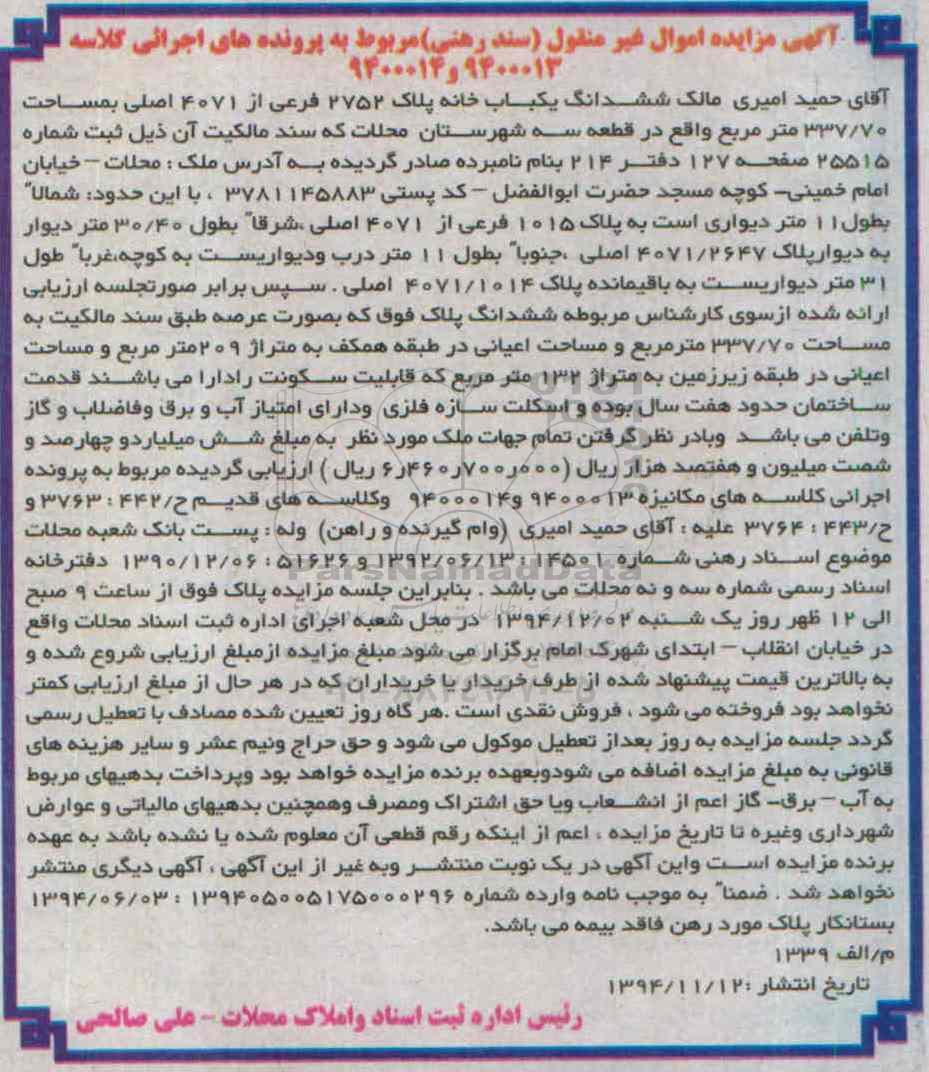 آگهی مزایده اموال غیر منقول (سند رهنی)مربوط به پرونده های اجرائی کلاسه
۹۴۰۰۰۱۳ و۹۴۰۰۰۱۴
آقای حمید امیری مالک ششدانگ یکباب خانه پلاک ۲۷۵۲ فرعی از ۴۰۷۱ اصلی بمساحت
۳۳۷/۷۰ متر مربع واقع در قطعه سه شهرستان محلات که سند مالکیت آن ذیل ثبت شماره
۲۵۵۱۵ صفحه ۱۲۷ دفتر ۲۱۴ بنام نامبرده صادر گردیده به آدرس ملک : محلات – خیابان
امام خمینی– کوچه مسجد حضرت ابوالفضل – کد پستی ۳۷۸۱۱۴۵۸۸۳ ، با این حدود: شمالاً
بطول۱۱ متر دیواری است به پلاک ۱۰۱۵ فرعی از ۴۰۷۱ اصلی ،شرقاً بطول ۳۰/۴۰ متر دیوار
به دیوارپلاک ۴۰۷۱/۲۶۴۷ اصلی ،جنوباً بطول ۱۱ متر درب ودیواریست به کوچه،غرباً طول
۳۱ متر دیواریست به باقیمانده پلاک ۴۰۷۱/۱۰۱۴ اصلی . سپس برابر صورتجلسه ارزیابی
ارائه شده ازسوی کارشناس مربوطه ششدانگ پلاک فوق که بصورت عرصه طبق سند مالکیت به
مساحت ۳۳۷/۷۰ مترمربع و مساحت اعیانی در طبقه همکف به متراژ ۲۰۹متر مربع و مساحت
اعیانی در طبقه زیرزمین به متراژ ۱۳۲ متر مربع که قابلیت سکونت رادارا می باشند قدمت
ساختمان حدود هفت سال بوده و اسکلت سازه فلزی ودارای امتیاز آب و برق وفاضلاب و گاز
وتلفن می باشد وبادر نظر گرفتن تمام جهات ملک مورد نظر به مبلغ شش میلیاردو چهارصد و
شصت میلیون و هفتصد هزار ریال (۰۰۰ر۷۰۰ر۴۶۰ر۶ ریال ) ارزیابی گردیده مربوط به پرونده
اجرائی کلاسه های مکانیزه ۹۴۰۰۰۱۳ و۹۴۰۰۰۱۴ وکلاسه های قدیم ح/۴۴۲ : ۳۷۶۳ و
ح/۴۴۳ : ۳۷۶۴ علیه : آقای حمید امیری (وام گیرنده و راهن) وله : پست بانک شعبه محلات
موضوع اسناد رهنی شماره ۱۴۵۰۱ : ۱۳۹۲/۰۶/۱۳ و ۵۱۶۲۶ : ۱۳۹۰/۱۲/۰۶ دفترخانه
اسناد رسمی شماره سه و نه محلات می باشد . بنابراین جلسه مزایده پلاک فوق از ساعت ۹ صبح
الی ۱۲ ظهر روز یک شنبه ۱۳۹۴/۱۲/۰۲ در محل شعبه اجرای اداره ثبت اسناد محلات واقع
در خیابان انقلاب – ابتدای شهرک امام برگزار می شود مبلغ مزایده ازمبلغ ارزیابی شروع شده و
به بالاترین قیمت پیشنهاد شده از طرف خریدار یا خریداران که در هر حال از مبلغ ارزیابی کمتر
نخواهد بود فروخته می شود ، فروش نقدی است .هر گاه روز تعیین شده مصادف با تعطیل رسمی
گردد جلسه مزایده به روز بعداز تعطیل موکول می شود و حق حراج ونیم عشر و سایر هزینه های
قانونی به مبلغ مزایده اضافه می شودوبعهده برنده مزایده خواهد بود وپرداخت بدهیهای مربوط
به آب – برق– گاز اعم از انشعاب ویا حق اشتراک ومصرف وهمچنین بدهیهای مالیاتی و عوارض
شهرداری وغیره تا تاریخ مزایده ، اعم از اینکه رقم قطعی آن معلوم شده یا نشده باشد به عهده
برنده مزایده است واین آگهی در یک نوبت منتشر وبه غیر از این آگهی ، آگهی دیگری منتشر
نخواهد شد . ضمناً به موجب نامه وارده شماره ۱۳۹۴۰۵۰۰۵۱۷۵۰۰۰۲۹۶ : ۱۳۹۴/۰۶/۰۳
بستانکار پلاک مورد رهن فاقد بیمه می باشد.
م/الف ۱۳۳۹
تاریخ انتشار :۱۳۹۴/۱۱/۱۲
رئیس اداره ثبت اسناد واملاک محلات – علی صالحی
ParsNamadData